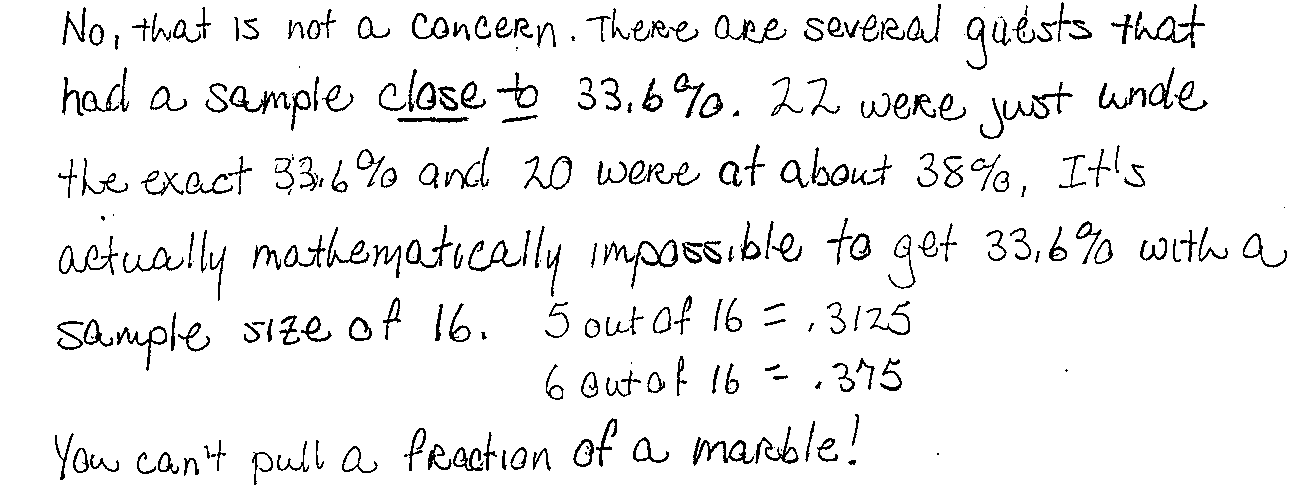 No, that is not a concern. There are several guests that
had a sample close to 33.6%. 22 were just unde
the exact 33.6% and 20 were at about 38%, It's
actually mathematically impossible to get 33.6% with a
sample size of 16. 5 out of 16 = .3125
6 out of 16 = .375
You can't pull a fraction of a marble!